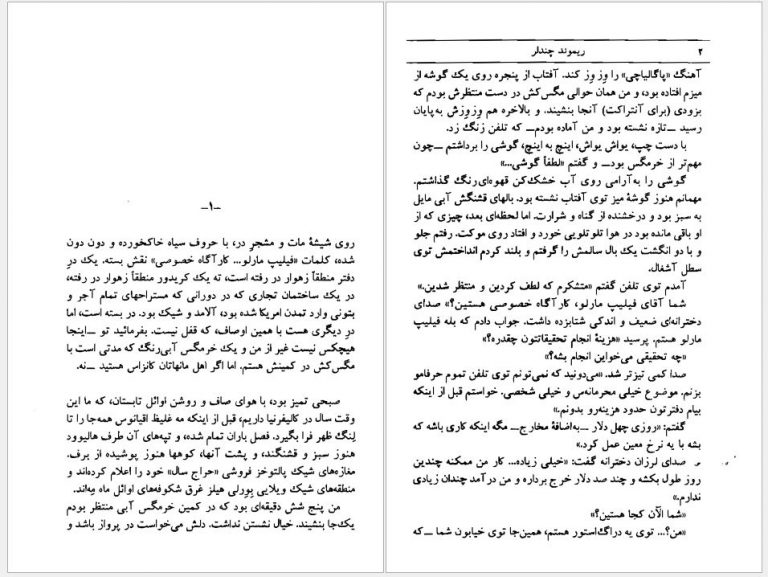 ـ۱ـ
روی شیشهٔ مات و مشجر در، با حروف سیاه خاکخورده و دون دون
شده، کلمات «فیلیپ مارلو... کارآگاه خصوصی» نقش بسته. یک درِ
دفتر منطقاً زهوار در رفته است، ته یک کریدور منطقاً زهوار در رفته،
در یک ساختمان تجاری که در دورانی که مستراحهای تمام آجر و
بتونی وارد تمدن امریکا شده بود، آلامد و شیک بود. در بسته است، اما
درِ دیگری هست با همین اوصاف، که قفل نیست. بفرمائید تو ــ اینجا
هیچکس نیست غیر از من و یک خرمگس آبی‌رنگ که مدتی است با
مگس‌کش در کمینش هستم. اما اگر اهل مانهاتان کانزاس هستید ــ نه.
صبحی تمیز بود، با هوای صاف و روشن اوائل تابستان، که ما این
وقت سال در کالیفرنیا داریم، قبل از اینکه مه غلیظ اقیانوس همه‌جا را تا
لِنگ ظهر فرا بگیرد. فصل باران تمام شده، و تپه‌های آن طرف هالیوود
هنوز سبز و قشنگند، و پشت آنها، کوهها هنوز پوشیده از برف.
مغازه‌های شیک پالتوخز فروشی «حراج سال» خود را اعلام کرده‌اند و
منطقه‌های شیک ویلایی بِورلی هیلز غرق شکوفه‌های اوائل ماه مه‌اند.
من پنج شش دقیقه‌ای بود که در کمین خرمگس آبی منتظر بودم
یک‌جا بنشیند. خیال نشستن نداشت. دلش می‌خواست در پرواز باشد و
۲ ریموند چندلر
آهنگ «پاگالیاچی» را وِز وِز کند. آفتاب از پنجره روی یک گوشه از
میزم افتاده بود، و من همان حوالی مگس‌کش در دست منتظرش بودم که
بزودی (برای آنتراکت) آنجا بنشیند. و بالاخره هم وِزوِزش به‌پایان
رسید ــ تازه نشسته بود و من آماده بودم ــ که تلفن زنگ زد.
با دست چپ، یواش یواش، اینچ به اینچ، گوشی را برداشتم ــ چون
مهم‌تر از خرمگس بود ــ و گفتم «لطفاً گوشی...»
گوشی را به‌آرامی روی آب خشک‌کن قهوه‌ای‌رنگ گذاشتم.
مهمانم هنوز گوشهٔ میز توی آفتاب نشسته بود. بالهای قشنگش آبی مایل
به سبز بود و درخشنده از گناه و شرارت. اما لحظه‌ای بعد، چیزی که از
او باقی مانده بود در هوا تلوتلویی خورد و افتاد روی موکت. رفتم جلو
و با دو انگشت یک بال سالمش را گرفتم و بلند کردم انداختمش توی
سطل آشغال.
آمدم توی تلفن گفتم «متشکرم که لطف کردین و منتظر شدین.»
«شما آقای فیلیپ مارلو، کارآگاه خصوصی هستین؟» صدای
دخترانه‌ای ضعیف و اندکی شتابزده داشت. جواب دادم که بله فیلیپ
مارلو هستم. پرسید «هزینهٔ انجام تحقیقاتتون چقدره؟»
«چه تحقیقی می‌خواین انجام بشه؟»
صدا کمی تیزتر شد. «می‌دونید که نمی‌تونم توی تلفن تموم حرفامو
بزنم. موضوع خیلی محرمانه‌س و خیلی شخصی. خواستم قبل از اینکه
بیام دفترتون حدود هزینه‌رو بدونم.»
گفتم: «روزی چهل دلار ــ به‌اضافهٔ مخارج ــ مگه اینکه کاری باشه که
بشه با یه نرخ معین عمل کرد.»
صدای لرزان دخترانه گفت: «خیلی زیاده... کار من ممکنه چندین
روز طول بکشه و چند صد دلار خرج برداره و من درآمد چندان زیادی
ندارم.»
«شما الآن کجا هستین؟»
«من؟... توی یه دراگ‌استور هستم، همین‌جا توی خیابون شما ــ که